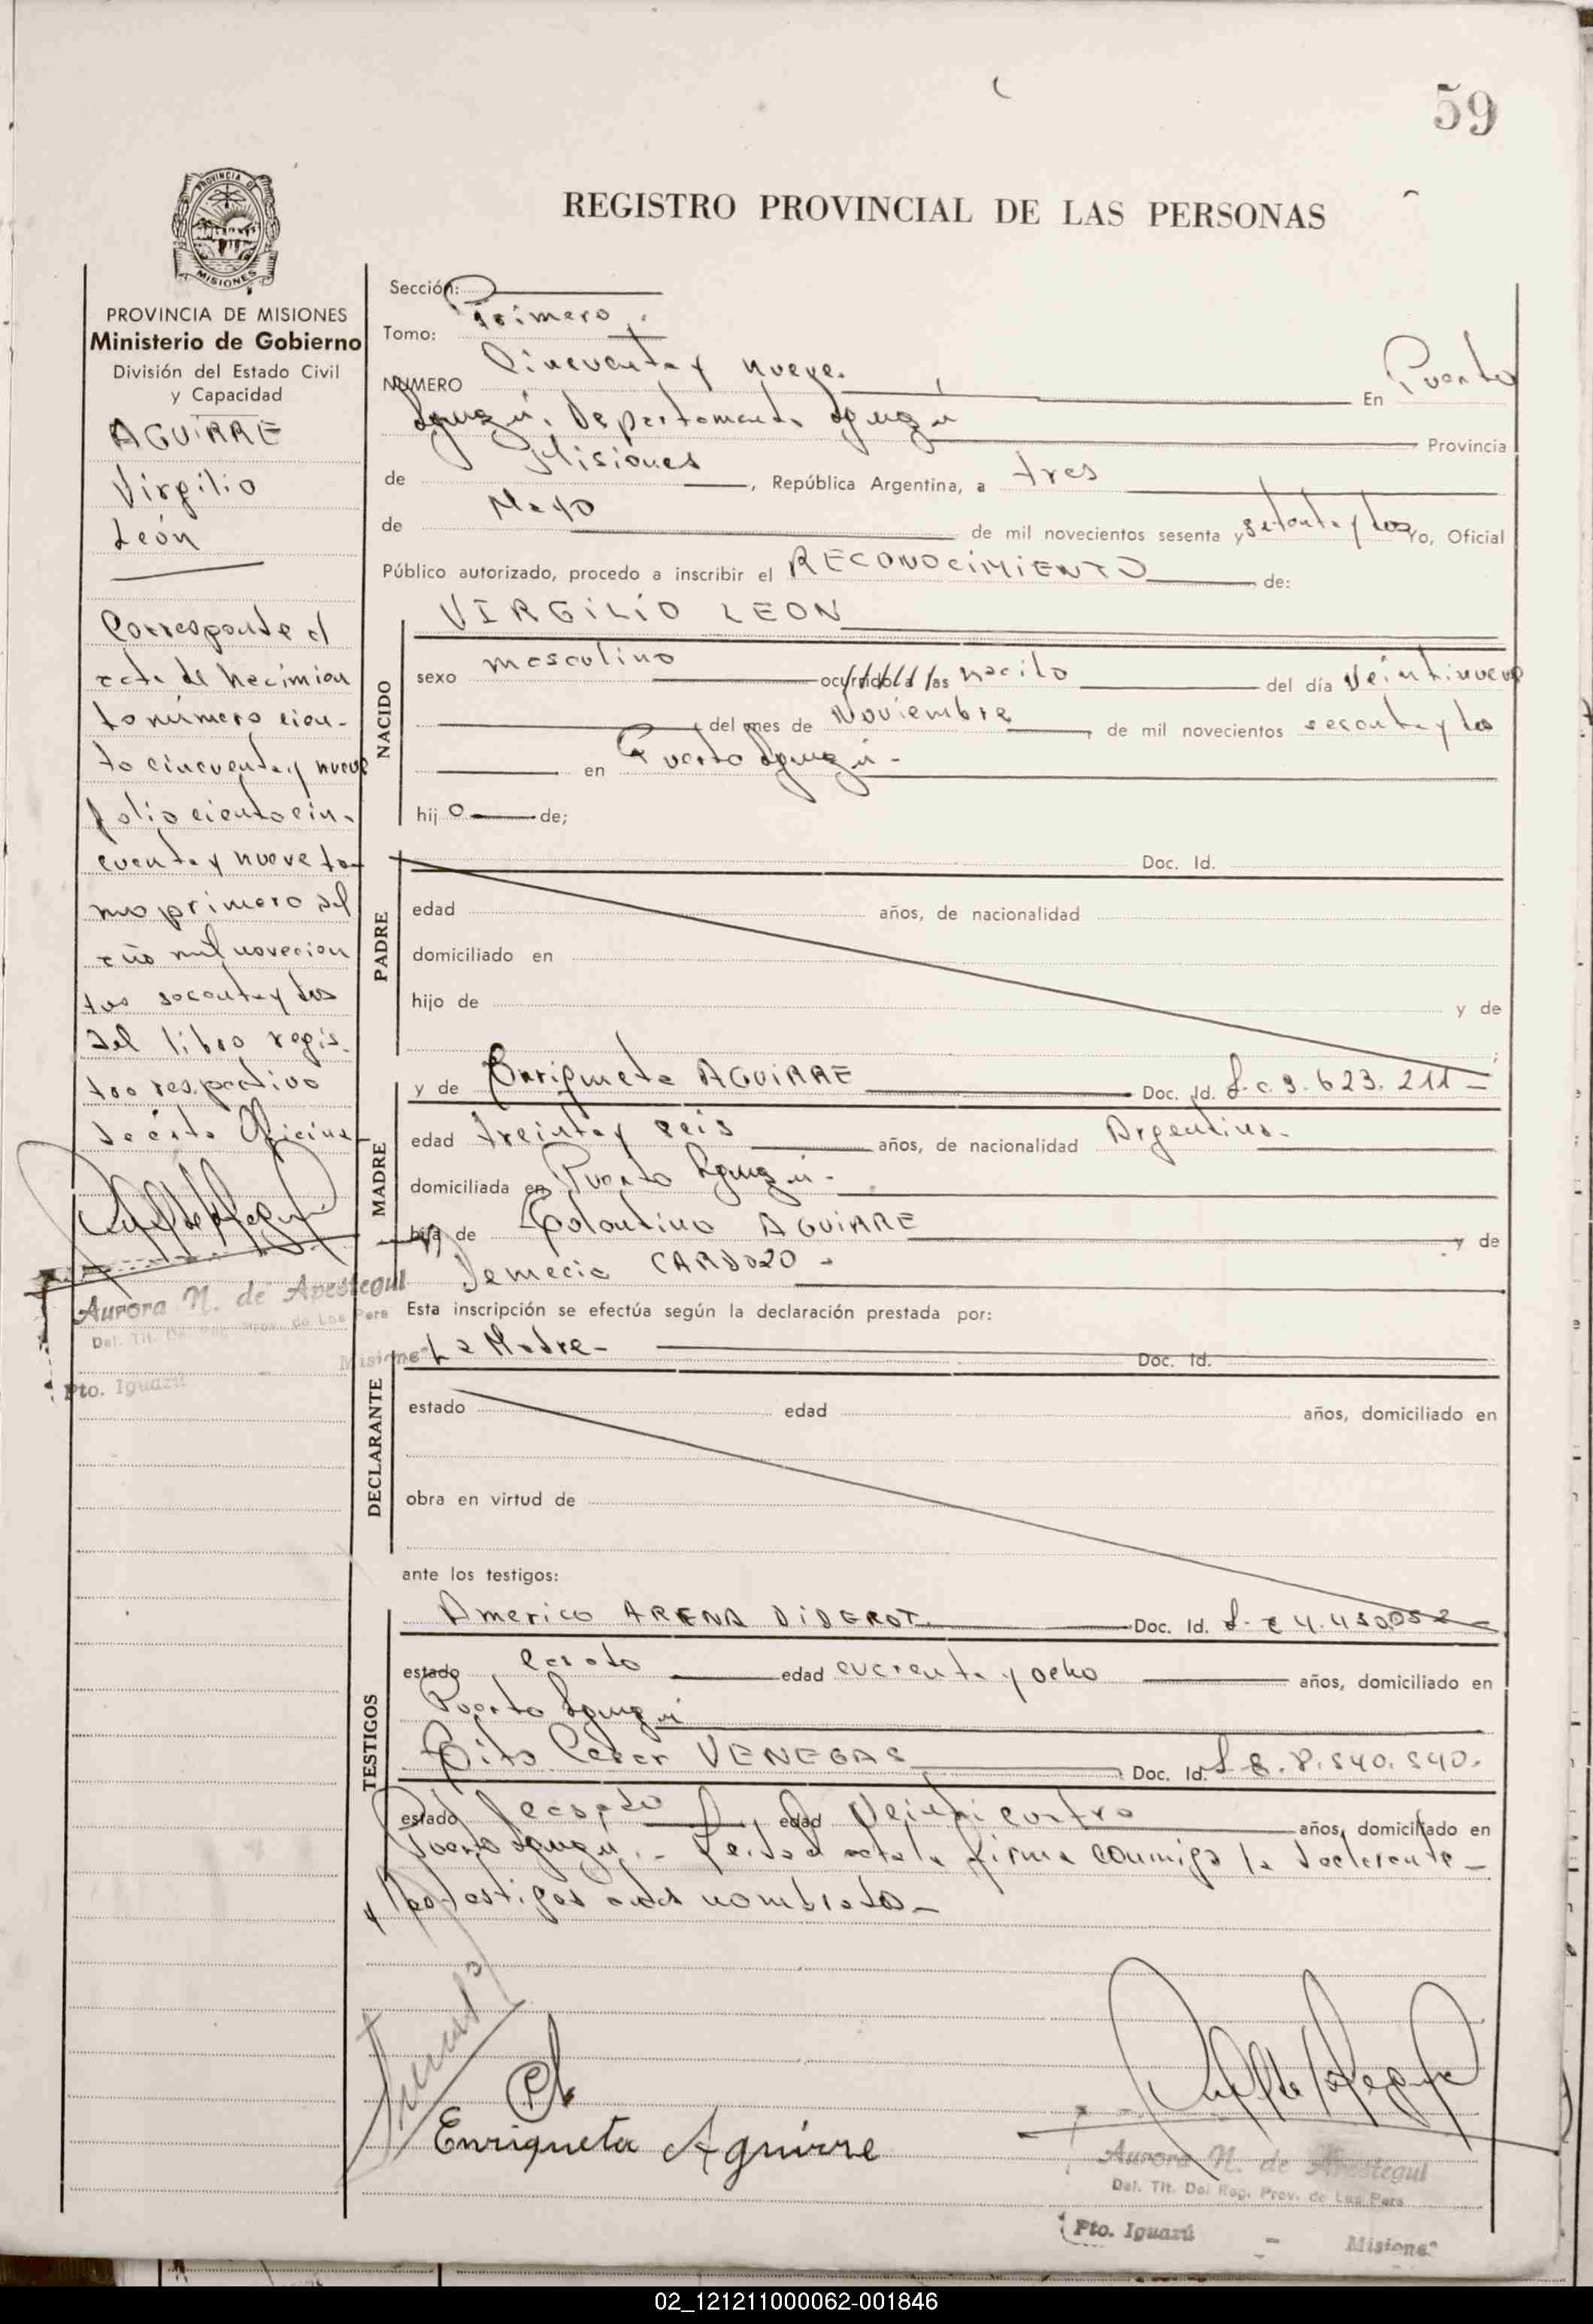 59
PROVINCIA DE
MISIONES
REGISTRO PROVINCIAL DE LAS PERSONAS
PROVINCIA DE MISIONES
Ministerio de Gobierno
División del Estado Civil
y Capacidad
AGUIRRE
Virgilio
León
Corresponde al
acta de nacimien
to número cien-
to cincuenta y nueve
folio ciento cin-
cuenta y nueve to-
mo primero del
año mil novecien
tos sesenta y dos
del libro regis-
tro respectivo
de ésta Oficina
Aurora N. de Apestegui
Del. Tit. Del Reg. Prov. de Las Pers
Misiones
Pto. Iguazú
Sección:
Tomo: Primero
NUMERO Cincuenta y nueve. En Puerto
Iguazú, Departamento Iguazú Provincia
de Misiones, República Argentina, a tres
de Mayo de mil novecientos sesenta y setenta y dos Yo, Oficial
Público autorizado, procedo a inscribir el RECONOCIMIENTO de:
NACIDO
VIRGILIO LEON
sexo masculino ocurrido a las nacido del día veintinueve
del mes de Noviembre de mil novecientos sesenta y dos
en Puerto Iguazú-
hijo de;
PADRE
Doc. Id.
edad años, de nacionalidad
domiciliado en
hijo de y de
MADRE
y de Enriqueta AGUIRRE Doc. Id. L.c. 9.623.211-
edad treinta y seis años, de nacionalidad Argentina-
domiciliada en Puerto Iguazú-
hija de Tolentino AGUIRRE y de
Demecia CARDOZO-
Esta inscripción se efectúa según la declaración prestada por:
DECLARANTE
La Madre- Doc. Id.
estado edad años, domiciliado en
obra en virtud de
ante los testigos:
TESTIGOS
Americo ARENA DIDEROT Doc. Id. L.e 4.430.052
estado casado edad cuarenta y ocho años, domiciliado en
Puerto Iguazú
Tito César VENEGAS Doc. Id. L.E. 8.540.540.
estado casado edad veinticuatro años, domiciliado en
Puerto Iguazú.- Leida el acta la firma conmigo la declarante-
y los testigos nombrados-
Enriqueta Aguirre
Aurora N. de Apestegui
Del. Tit. Del Reg. Prov. de Las Pers
Pto. Iguazú - Misiones
02_121211000062-001846